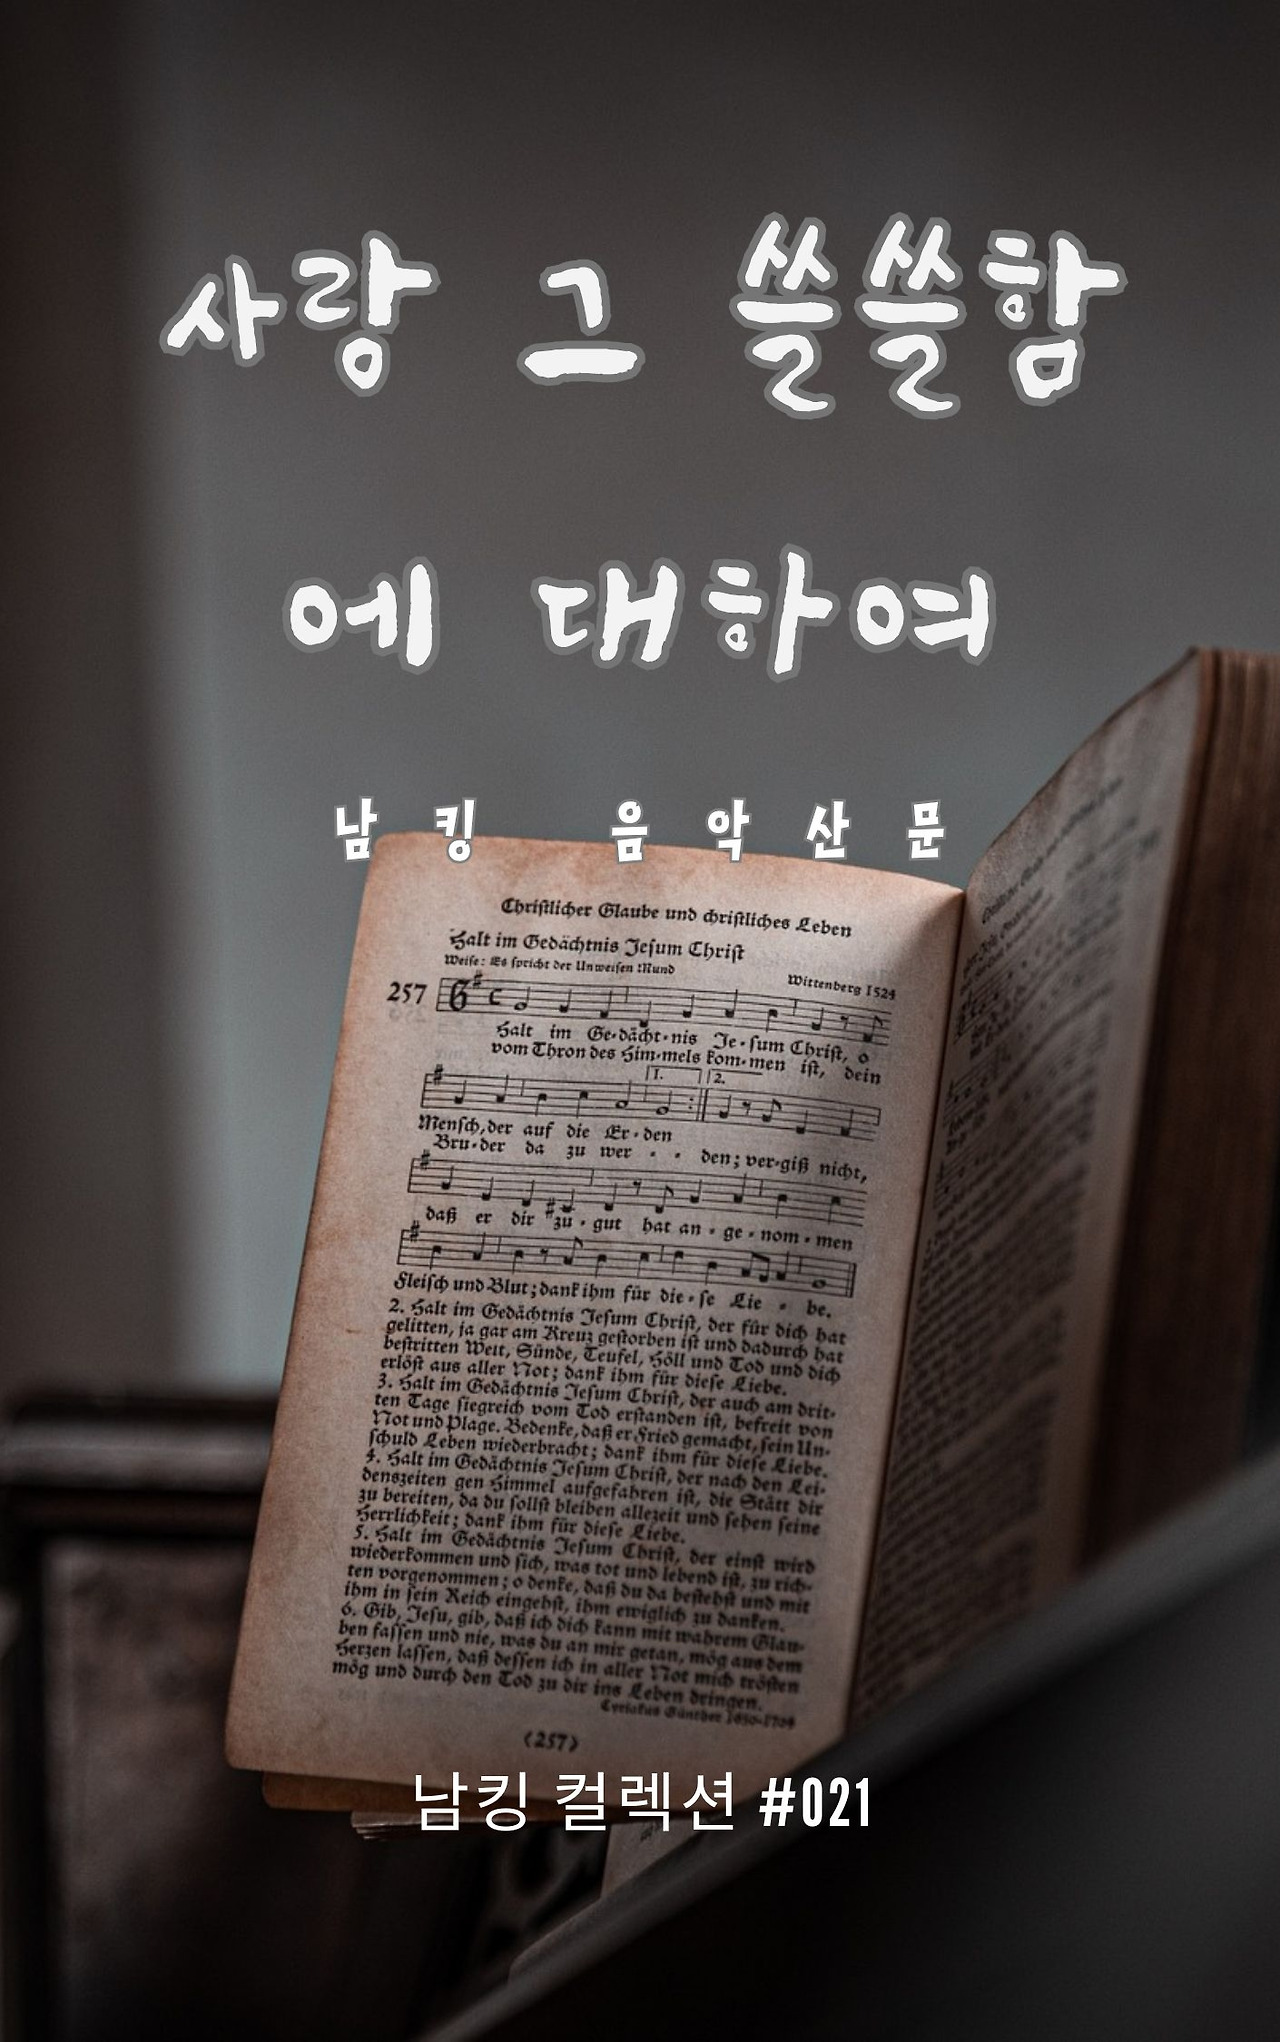 사랑 그 쓸쓸함
에 대하여
남킹 음악산문
Christlicher Glaube und christliches Leben
Halt im Gedächtnis Jesum Christ
Weise: Es spricht der Unweisen Mund
Wittenberg 1524
257
Halt im Ge-dächt-nis Je-sum Christ, o
vom Thron des Him-mels kom-men ist, dein
1. 2.
Mensch, der auf die Er-den
Bru-der da zu wer - - den; ver-giß nicht,
daß er dir zu-gut hat an-ge-nom-men
Fleisch und Blut; dank ihm für die-se Lie - be.
2. Halt im Gedächtnis Jesum Christ, der für dich hat
gelitten, ja gar am Kreuz gestorben ist und dadurch hat
bestritten Welt, Sünde, Teufel, Höll und Tod und dich
erlöst aus aller Not; dank ihm für diese Liebe.
3. Halt im Gedächtnis Jesum Christ, der auch am drit-
ten Tage siegreich vom Tod erstanden ist, befreit von
Not und Plage. Bedenke, daß er Fried gemacht, sein Un-
schuld Leben wiederbracht; dank ihm für diese Liebe.
4. Halt im Gedächtnis Jesum Christ, der nach den Lei-
denszeiten gen Himmel aufgefahren ist, die Stätt dir
zu bereiten, da du sollst bleiben allezeit und sehen seine
Herrlichkeit; dank ihm für diese Liebe.
5. Halt im Gedächtnis Jesum Christ, der einst wird
wiederkommen und sich, was tot und lebend ist, zu rich-
ten vorgenommen; o denke, daß du da bestehst und mit
ihm in sein Reich eingehst, ihm ewiglich zu danken.
6. Gib, Jesu, gib, daß ich dich kann mit wahrem Glau-
ben fassen und nie, was du an mir getan, mög aus dem
Herzen lassen, daß dessen ich in aller Not mich trösten
mög und durch den Tod zu dir ins Leben dringen.
Cyriakus Günther 1650-1704
(257)
남킹 컬렉션 #021